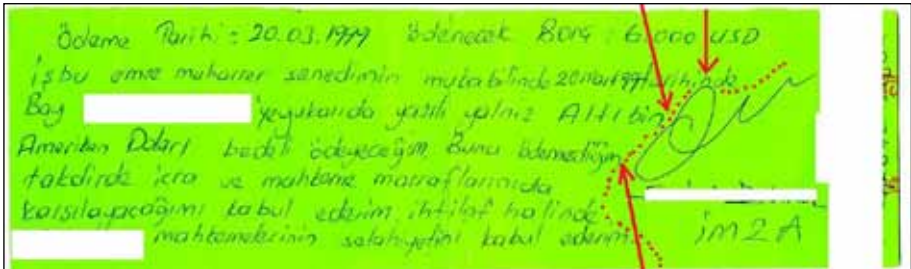 Ödeme Tarihi : 20.03.1999 Ödenecek Borç : 6.000 USD
işbu emre muharrer senedimin mukabilinde 20 mart 1999 tarihinde
Bay 'ye yukarıda yazılı yalnız Altıbin
Amerikan Doları bedeli ödeyeceğim. Bunu ödemediğim
takdirde icra ve mahkeme masraflarınıda
karşılayacağımı kabul ederim, ihtilaf halinde
mahkemelerinin selahiyetini kabul ederim. İMZA